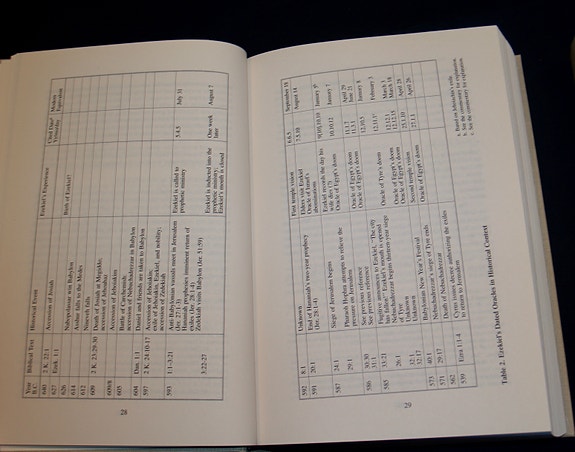 Year B.C. Biblical Text Historical Event Ezekiel's Experience Cited Date Modern Equivalent
640 2 K. 22:1 Accession of Josiah
627 Ezek. 1:1 Birth of Ezekiel?
626 Babylon
614 Asshur falls to the Medes
612 Nineveh falls
609 2 K. 23:29-30 Death of Josiah in Megiddo;
accession of Jehoahaz
609/8 Accession of Jehoiakim
605 Battle of Carchemish;
accession of Nebuchadrezzar in Babylon
604 Dan. 1:1 Daniel and friends are taken to Babylon
597 2 K. 24:10-17 Accession of Jehoiakin;
exile of Jehoiakin, Ezekiel, and nobility;
accession of Zedekiah
593 Anti-Babylonian vassals meet in Jerusalem
(Jer. 27:1-3)
1:1-3:21 Hananiah prophesies imminent return of
exiles (Jer. 28:1-4) Ezekiel is called to
prophetic ministry 5.4.5 July 31
3:22-27 Zedekiah visits Babylon (Jer. 51:59) Ezekiel is inducted into the
prophetic ministry; One week
later August 7
Ezekiel's mouth is closed
28
592 8:1 Unknown First temple vision 6.6.5 September 18
591 20:1 End of Hananiah's two-year prophecy
(Jer. 28:1-4) Elders visit Ezekiel
Oracle of Israel's
abominations 7.5.10 August 14
24:1 Siege of Jerusalem begins Ezekiel records the day his
wife dies (?) 9[10].10.10 January 5
587 29:1 Pharaoh Hophra attempts to relieve the
pressure on Jerusalem Oracle of Egypt's doom 10.10.12 January 7
30:20 See previous reference Oracle of Egypt's doom 11.1.7 April 29
31:1 See previous reference Oracle of Egypt's doom 11.3.1 June 21
33:21 Fugitive announces to Ezekiel, "The city
has fallen!" Ezekiel's mouth is opened 12.10.5 January 8
585 26:1 Nebuchadrezzar begins thirteen-year siege
of Tyre Oracle of Tyre's doom February 3
32:1 Unknown Oracle of Egypt's doom 12.12.1 March 3
32:17 Unknown Oracle of Egypt's doom 12.12.15 March 18
573 40:1 Babylonian New Year's Festival Second temple vision 25.1.10 April 28
571 29:17 Nebuchadrezzar's siege of Tyre ends Oracle of Egypt's doom 27.1.1 April 26
562 Death of Nebuchadrezzar
539 Ezra 1:1-4 Cyrus issues decree authorizing the exiles
to return to Jerusalem
a. Based on Jehoiachin's exile
b. See the commentary for explanation.
c. See the commentary for explanation.
Table 2. Ezekiel's Dated Oracles in Historical Context
29